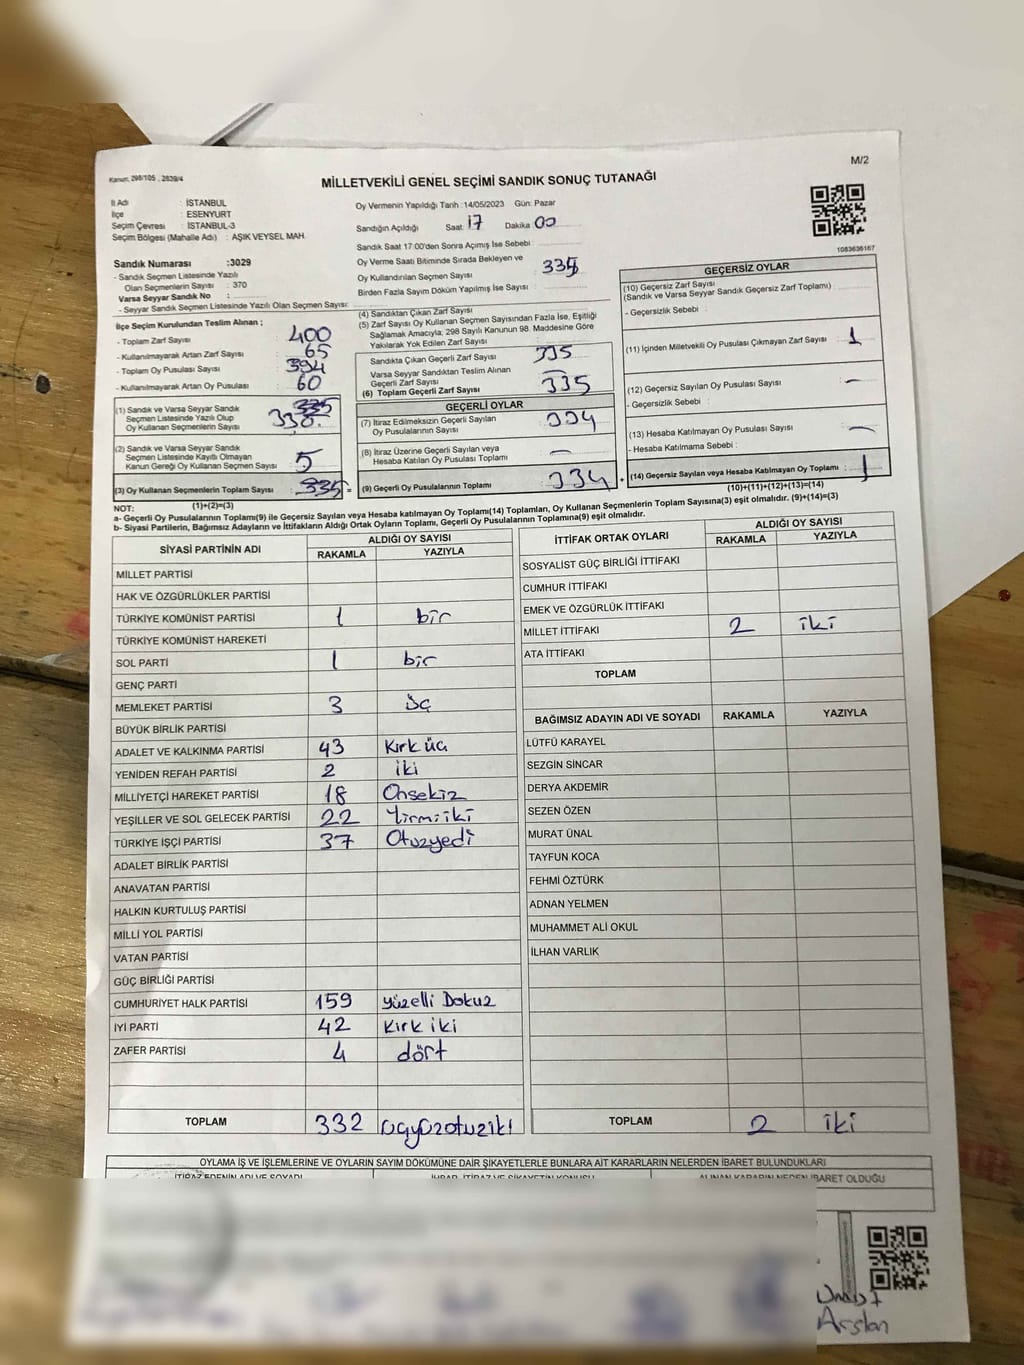 M/2
Kanun: 298/105 , 2839/4
MİLLETVEKİLİ GENEL SEÇİMİ SANDIK SONUÇ TUTANAĞI
İl Adı : İSTANBUL
İlçe : ESENYURT
Seçim Çevresi : İSTANBUL-3
Seçim Bölgesi (Mahalle Adı) : AŞIK VEYSEL MAH.
Sandık Numarası :3029
- Sandık Seçmen Listesinde Yazılı
Olan Seçmenlerin Sayısı : 370
Varsa Seyyar Sandık No :
- Seyyar Sandık Seçmen Listesinde Yazılı Olan Seçmen Sayısı:
Oy Vermenin Yapıldığı Tarih :14/05/2023 Gün: Pazar
Sandığın Açıldığı Saat: 17 Dakika 00
Sandık Saat 17:00'den Sonra Açımış İse Sebebi :
Oy Verme Saati Bitiminde Sırada Bekleyen ve
Oy Kullandırılan Seçmen Sayısı : 335
Birden Fazla Sayım Döküm Yapılmış İse Sayısı :
1083636167
İlçe Seçim Kurulundan Teslim Alınan ;
- Toplam Zarf Sayısı : 400
- Kullanılmayarak Artan Zarf Sayısı : 65
- Toplam Oy Pusulası Sayısı : 394
- Kullanılmayarak Artan Oy Pusulası : 60
(1) Sandık ve Varsa Seyyar Sandık
Seçmen Listesinde Yazılı Olup
Oy Kullanan Seçmenlerin Sayısı : 335 330.
(2) Sandık ve Varsa Seyyar Sandık
Seçmen Listesinde Kayıtlı Olmayan
Kanun Gereği Oy Kullanan Seçmen Sayısı : 5
(3) Oy Kullanan Seçmenlerin Toplam Sayısı : 335 =
(1)+(2)=(3)
(4) Sandıktan Çıkan Zarf Sayısı
(5) Zarf Sayısı Oy Kullanan Seçmen Sayısından Fazla İse, Eşitliği
Sağlamak Amacıyla, 298 Sayılı Kanunun 98. Maddesine Göre
Yakılarak Yok Edilen Zarf Sayısı :
Sandıkta Çıkan Geçerli Zarf Sayısı : 335
Varsa Seyyar Sandıktan Teslim Alınan
Geçerli Zarf Sayısı : —
(6) Toplam Geçerli Zarf Sayısı : 335
GEÇERLİ OYLAR
(7) İtiraz Edilmeksizin Geçerli Sayılan
Oy Pusulalarının Sayısı : 334
(8) İtiraz Üzerine Geçerli Sayılan veya
Hesaba Katılan Oy Pusulası Toplamı : —
(9) Geçerli Oy Pusulalarının Toplamı : 334 +
GEÇERSİZ OYLAR
(10) Geçersiz Zarf Sayısı
(Sandık ve Varsa Seyyar Sandık Geçersiz Zarf Toplamı) :
- Geçersizlik Sebebi :
(11) İçinden Milletvekili Oy Pusulası Çıkmayan Zarf Sayısı : 1
(12) Geçersiz Sayılan Oy Pusulası Sayısı : —
- Geçersizlik Sebebi :
(13) Hesaba Katılmayan Oy Pusulası Sayısı : —
- Hesaba Katılmama Sebebi :
(14) Geçersiz Sayılan veya Hesaba Katılmayan Oy Toplamı : 1
(10)+(11)+(12)+(13)=(14)
NOT:
a- Geçerli Oy Pusulaları Toplamı(9) ile Geçersiz Sayılan veya Hesaba katılmayan Oy Toplamı(14) Toplamları, Oy Kullanan Seçmenlerin Toplam Sayısına(3) eşit olmalıdır. (9)+(14)=(3)
b- Siyasi Partilerin, Bağımsız Adayların ve İttifakların Aldığı Ortak Oyların Toplamı, Geçerli Oy Pusulalarının Toplamına(9) eşit olmalıdır.
SİYASİ PARTİNİN ADI ALDIĞI OY SAYISI
RAKAMLA YAZIYLA
MİLLET PARTİSİ
HAK VE ÖZGÜRLÜKLER PARTİSİ
TÜRKİYE KOMÜNİST PARTİSİ 1 bir
TÜRKİYE KOMÜNİST HAREKETİ
SOL PARTİ 1 bir
GENÇ PARTİ
MEMLEKET PARTİSİ 3 üç
BÜYÜK BİRLİK PARTİSİ
ADALET VE KALKINMA PARTİSİ 43 Kırk üç
YENİDEN REFAH PARTİSİ 2 iki
MİLLİYETÇİ HAREKET PARTİSİ 18 Onsekiz
YEŞİLLER VE SOL GELECEK PARTİSİ 22 Yirmiiki
TÜRKİYE İŞÇİ PARTİSİ 37 Otuzyedi
ADALET BİRLİK PARTİSİ
ANAVATAN PARTİSİ
HALKIN KURTULUŞ PARTİSİ
MİLLİ YOL PARTİSİ
VATAN PARTİSİ
GÜÇ BİRLİĞİ PARTİSİ
CUMHURİYET HALK PARTİSİ 159 yüzelli Dokuz
İYİ PARTİ 42 Kırk iki
ZAFER PARTİSİ 4 dört
TOPLAM 332 üçyüzotuziki
İTTİFAK ORTAK OYLARI ALDIĞI OY SAYISI
RAKAMLA YAZIYLA
SOSYALİST GÜÇ BİRLİĞİ İTTİFAKI
CUMHUR İTTİFAKI
EMEK VE ÖZGÜRLÜK İTTİFAKI
MİLLET İTTİFAKI 2 iki
ATA İTTİFAKI
TOPLAM
BAĞIMSIZ ADAYIN ADI VE SOYADI RAKAMLA YAZIYLA
LÜTFÜ KARAYEL
SEZGİN SİNCAR
DERYA AKDEMİR
SEZEN ÖZEN
MURAT ÜNAL
TAYFUN KOCA
FEHMİ ÖZTÜRK
ADNAN YELMEN
MUHAMMET ALİ OKUL
İLHAN VARLIK
TOPLAM 2 iki
OYLAMA İŞ VE İŞLEMLERİNE VE OYLARIN SAYIM DÖKÜMÜNE DAİR ŞİKAYETLERLE BUNLARA AİT KARARLARIN NELERDEN İBARET BULUNDUKLARI
İTİRAZ EDENİN ADI VE SOYADI İHBAR, İTİRAZ VE ŞİKAYETİN KONUSU ALINAN KARARIN NEDEN İBARET OLDUĞU
Arslan